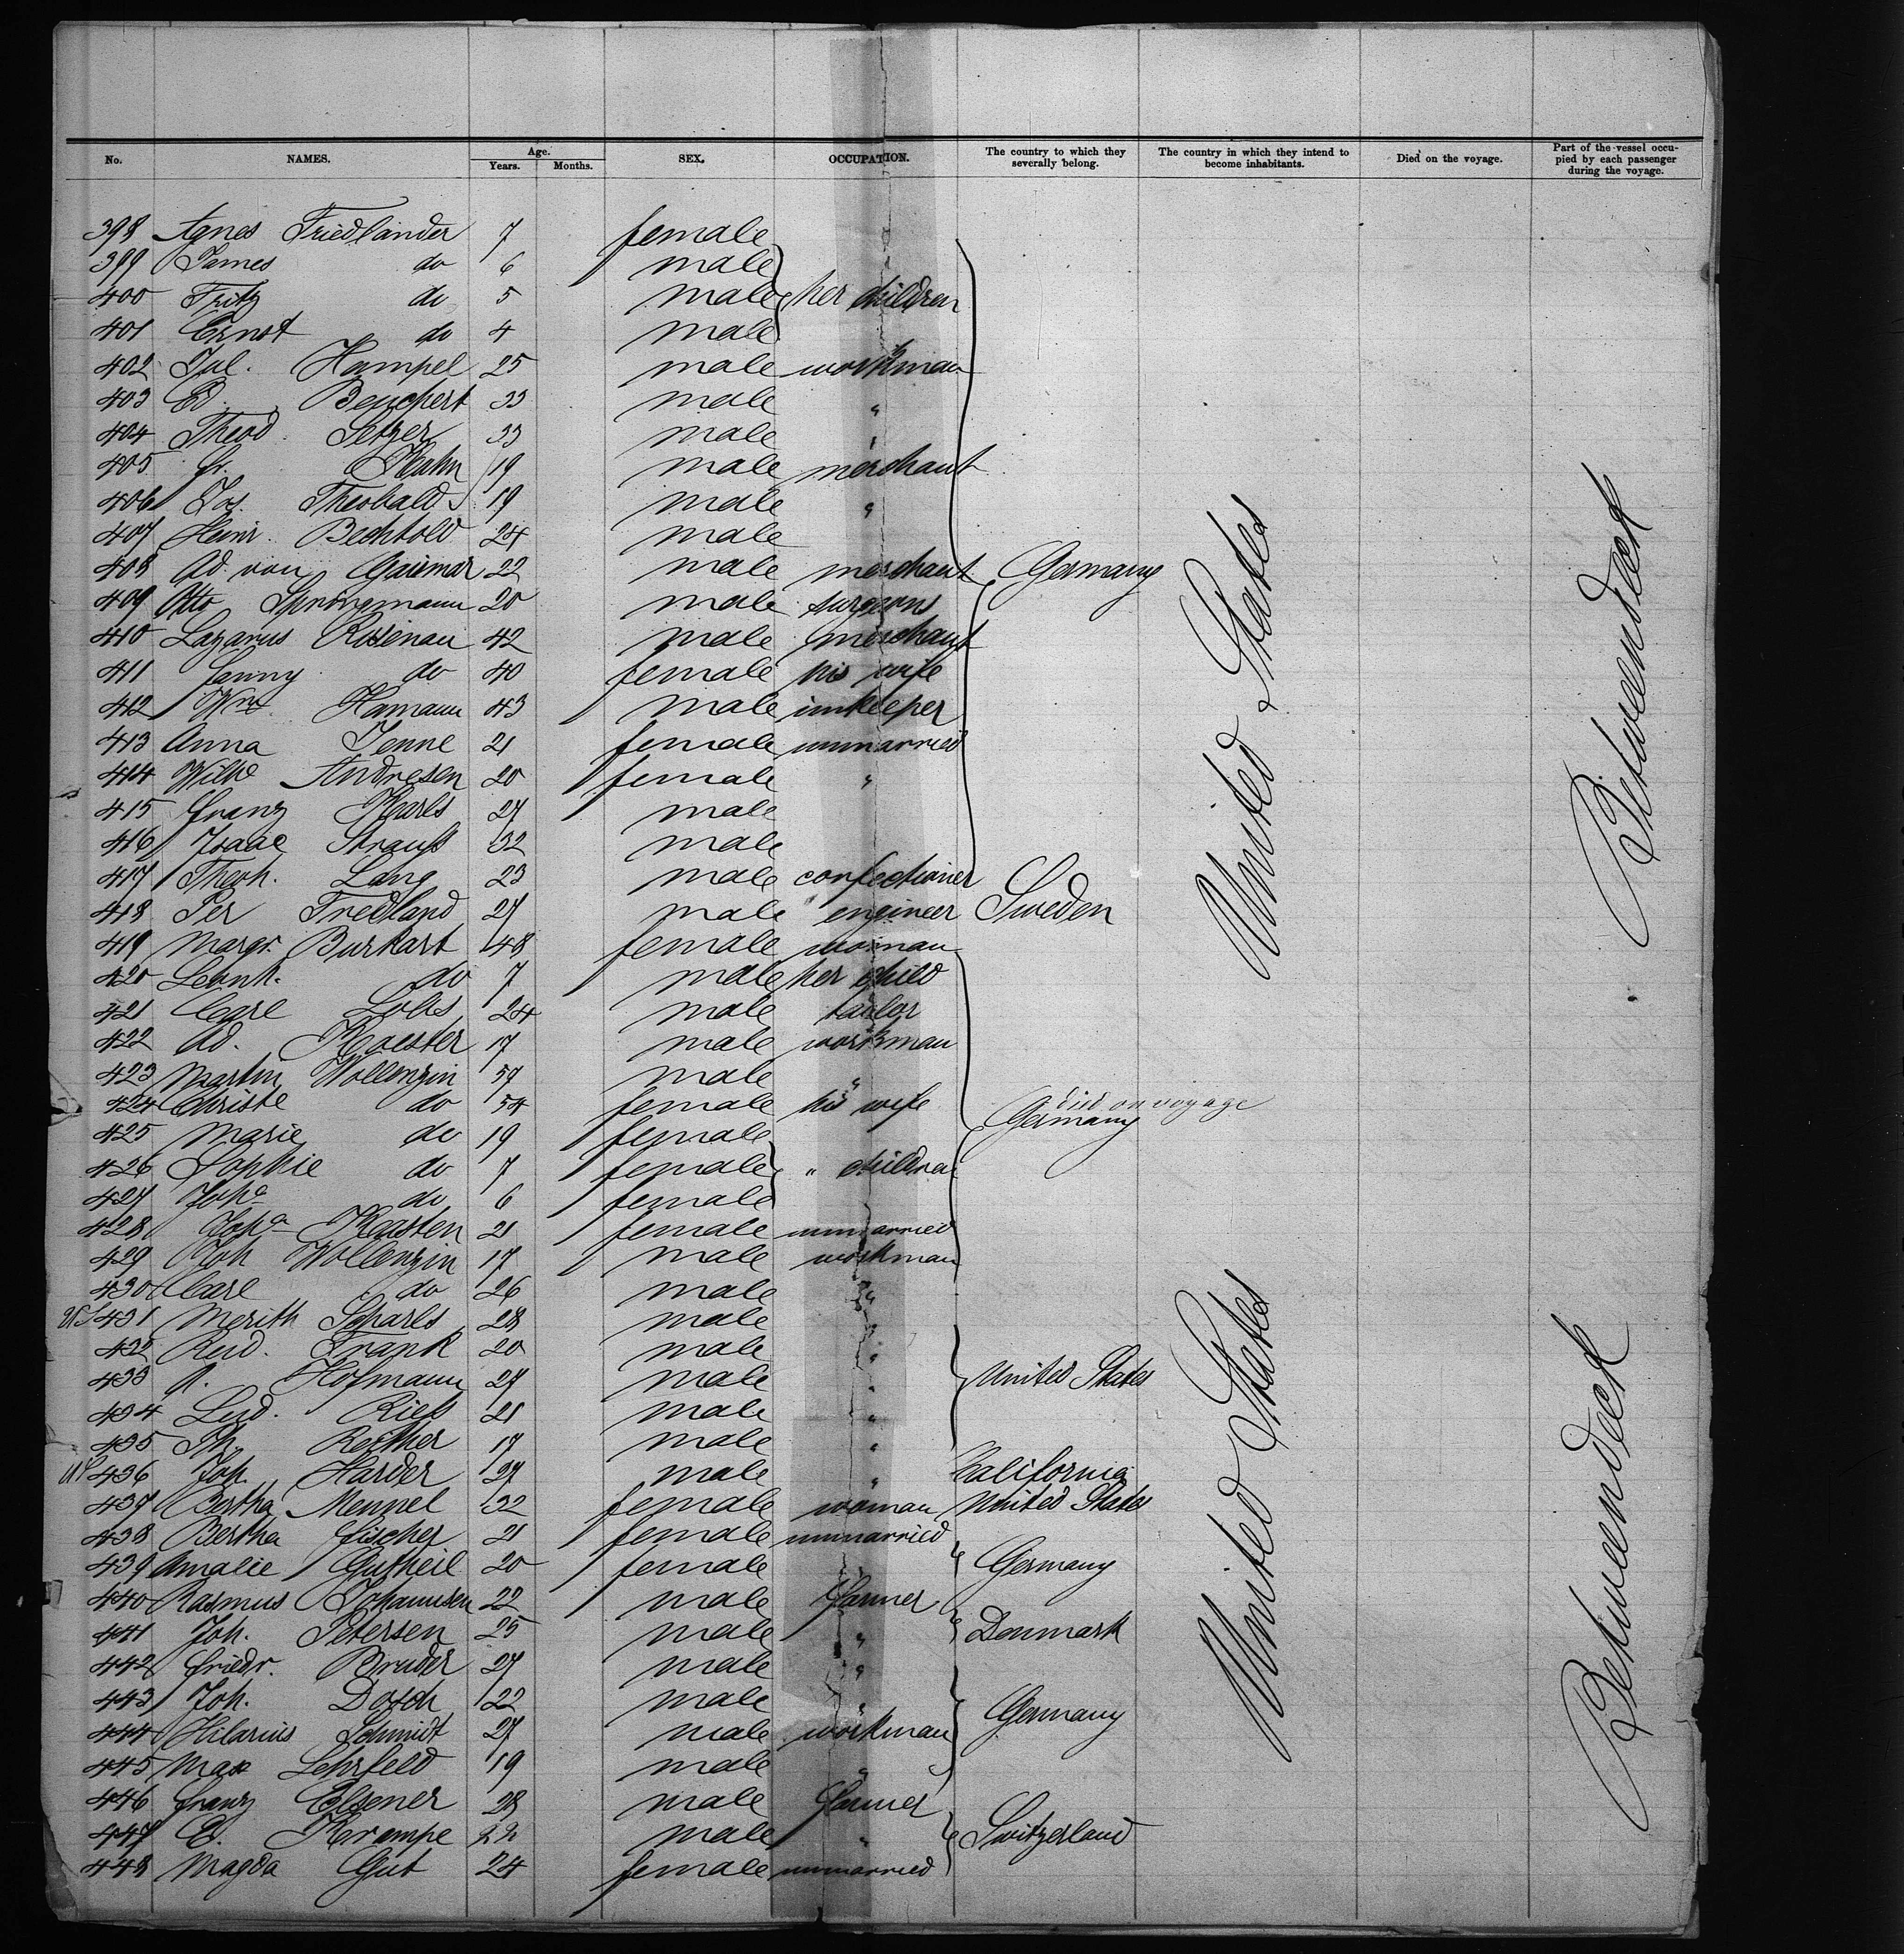 No. NAMES. Age. Years. Months. SEX. OCCUPATION. The country to which they severally belong. The country in which they intend to become inhabitants. Died on the voyage. Part of the vessel occupied by each passenger during the voyage.
398 Agnes Friedlander 7 female
399 James do 6 male
400 Fritz do 5 male her children
401 Ernst do 4 male
402 Jul. Hampel 25 male workman
403 Ed. Beuchert 33 male "
404 Theod. Setzer 33 male "
405 Fr. Hahn 19 male merchant
406 Jos. Theobald 19 male "
407 Heinr. Bechtold 24 male
408 Ad. von 22 male merchant Germany
409 Otto Springmann 20 male surgeons
410 Lazarus Rosenau 42 male merchant
411 Fanny do 40 female his wife
412 Wm Hamann 43 male innkeeper
413 Anna Jenne 21 female unmarried
414 Wilhe Andresen 20 female "
415 Franz Karls 27 male
416 Isaac Strauß 32 male
417 Theoh. Lang 23 male confectioner
418 Per Fredland 27 male engineer Sweden
419 Margr. Burkart 48 female woman
420 Leonh. do 7 male her child
421 Carl Lobs 24 male tailor
422 Ad. Koester 17 male workman
423 Martin Wollenzin 57 male "
424 Christe do 54 female his wife died on voyage
Germany
425 Marie do 19 female
426 Sophie do 7 female " children
427 Joha do 6 female
428 Joha Kasten 21 female unmarried
429 Joh Wollenzin 17 male workman
430 Carl do 26 male "
431 Merith Scharls 28 male "
432 Rud. Frank 20 male "
433 A. Hofmann 27 male " United States
434 Lud. Rieß 21 male "
435 Ph. Reither 17 male "
436 Joh. Harder 27 male " California
437 Bertha Mennel 32 female woman United States
438 Bertha Fischer 21 female unmarried
439 Amalie Gutheil 20 female Germany
440 Rasmus Johannsen 22 male farmer
441 Joh. Petersen 25 male " Denmark
442 Friedr. Bruder 27 male "
443 Joh. Dosch 22 male " Germany
444 Hilarius Schmidt 27 male workman
445 Max Lehrfeld 19 male "
446 Franz Elsener 28 male farmer
447 E. Krampe 22 male " Switzerland
448 Magda Gut 24 female unmarried
United States
Betweendeck
United States
Betweendeck